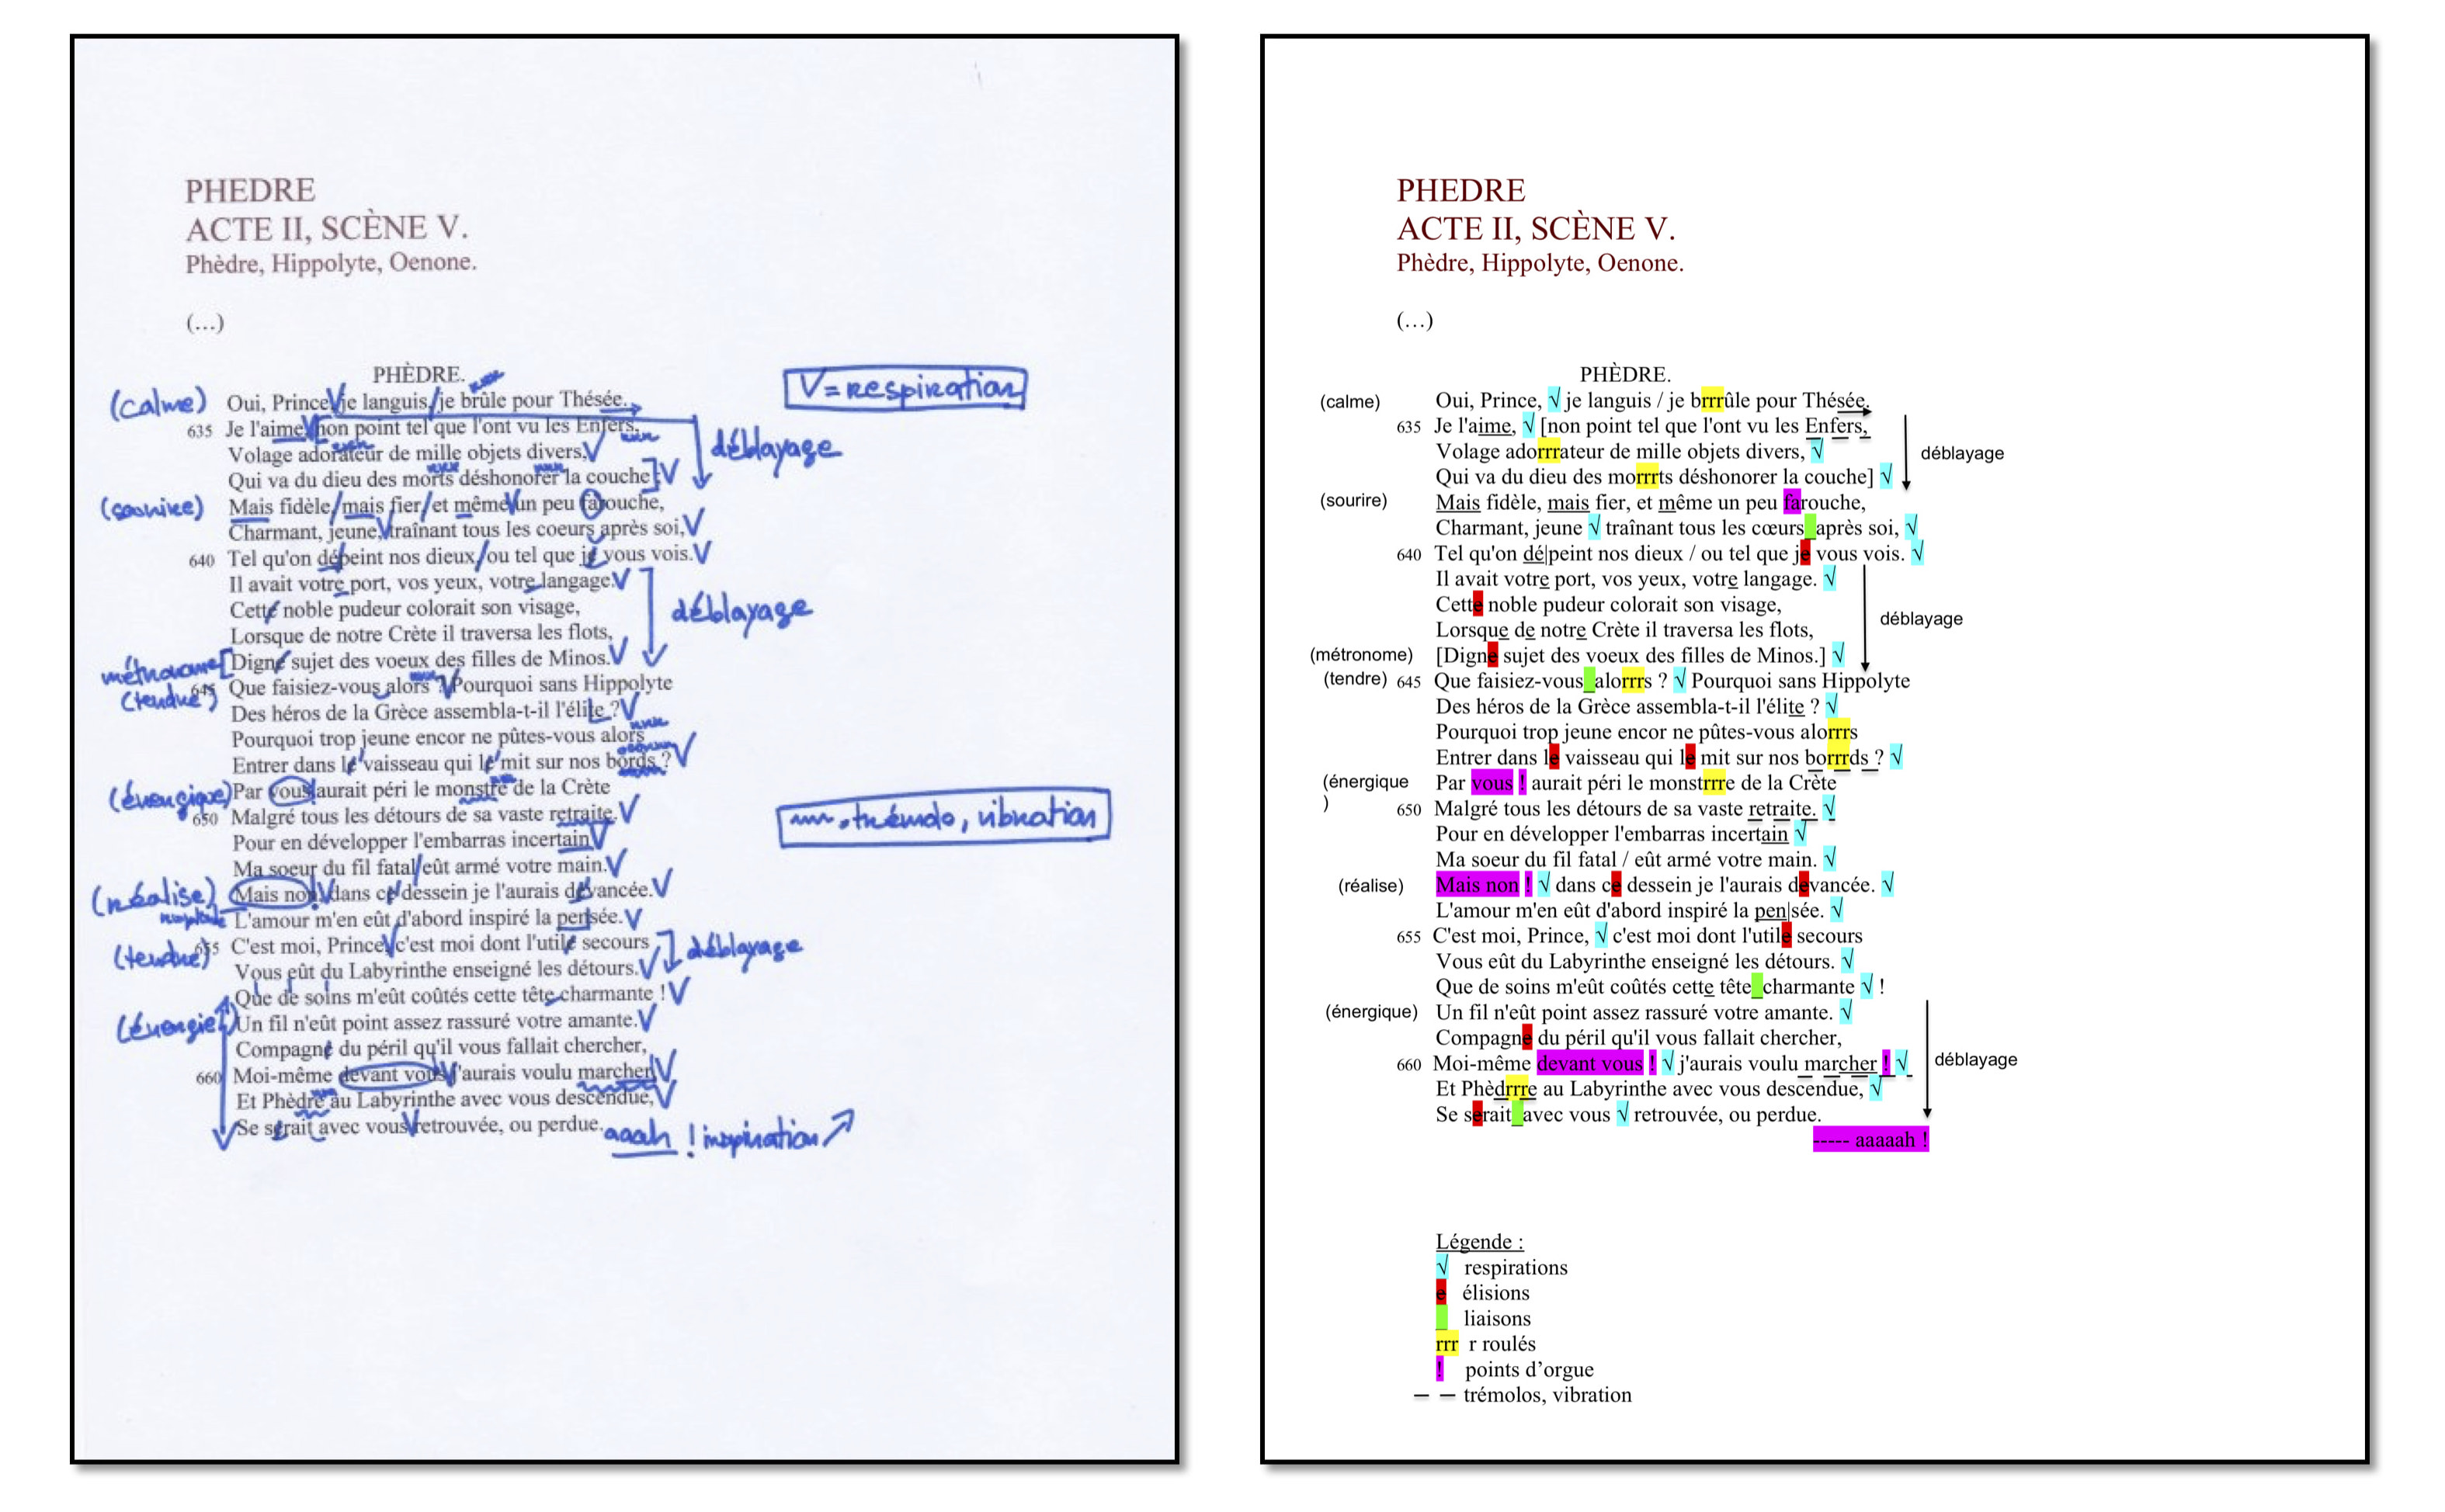 PHEDRE
ACTE II, SCÈNE V.
Phèdre, Hippolyte, Oenone.
(…)
PHÈDRE.
(calme) Oui, Prince, V je languis, / je brûle pour Thésée.
V = respiration
635 Je l'aime, V non point tel que l'ont vu les Enfers,
déblayage
Volage adorateur de mille objets divers, V
Qui va du dieu des morts déshonorer la couche ; ] V
(sourire) Mais fidèle, / mais fier, / et même V un peu farouche,
Charmant, jeune, V traînant tous les coeurs après soi, V
640 Tel qu'on dépeint nos dieux, / ou tel que je vous vois. V
Il avait votre port, vos yeux, votre langage. V
Cette noble pudeur colorait son visage,
déblayage
Lorsque de notre Crète il traversa les flots,
métronome [ Digne sujet des voeux des filles de Minos. V
(tendre) 645 Que faisiez-vous alors ? V Pourquoi sans Hippolyte
Des héros de la Grèce assembla-t-il l'élite ? V
Pourquoi trop jeune encor ne pûtes-vous alors
Entrer dans le vaisseau qui le mit sur nos bords ? V
(énergique) Par vous aurait péri le monstre de la Crète
650 Malgré tous les détours de sa vaste retraite. V
~~~ = trémolo, vibration
Pour en développer l'embarras incertain V
Ma soeur du fil fatal / eût armé votre main. V
(réalise) Mais non, V dans ce dessein je l'aurais devancée. V
L'amour m'en eût d'abord inspiré la pensée. V
(tendre) 655 C'est moi, Prince, V c'est moi dont l'utile secours
déblayage
Vous eût du Labyrinthe enseigné les détours. V
Que de soins m'eût coûtés cette tête charmante ! V
(énergie) Un fil n'eût point assez rassuré votre amante. V
Compagne du péril qu'il vous fallait chercher,
660 Moi-même devant vous V j'aurais voulu marcher, V
Et Phèdre au Labyrinthe avec vous descendue, V
Se serait avec vous V retrouvée, ou perdue. aaah ! inspiration
PHEDRE
ACTE II, SCÈNE V.
Phèdre, Hippolyte, Oenone.
(…)
PHÈDRE.
(calme) Oui, Prince, √ je languis / je brrrûle pour Thésée.
635 Je l'aime, √ [non point tel que l'ont vu les Enfers,
Volage adorrrateur de mille objets divers, √ déblayage
Qui va du dieu des morrrts déshonorer la couche] √
(sourire) Mais fidèle, mais fier, et même un peu farouche,
Charmant, jeune √ traînant tous les cœurs_après soi, √
640 Tel qu'on dé|peint nos dieux / ou tel que je vous vois. √
Il avait votre port, vos yeux, votre langage. √
Cette noble pudeur colorait son visage,
déblayage
Lorsque de notre Crète il traversa les flots,
(métronome) [Digne sujet des voeux des filles de Minos.] √
(tendre) 645 Que faisiez-vous_alorrrs ? √ Pourquoi sans Hippolyte
Des héros de la Grèce assembla-t-il l'élite ? √
Pourquoi trop jeune encor ne pûtes-vous alorrrs
Entrer dans le vaisseau qui le mit sur nos borrrds ? √
(énergique) Par vous ! aurait péri le monstrrre de la Crète
650 Malgré tous les détours de sa vaste retraite. √
Pour en développer l'embarras incertain √
Ma soeur du fil fatal / eût armé votre main. √
(réalise) Mais non ! √ dans ce dessein je l'aurais devancée. √
L'amour m'en eût d'abord inspiré la pen|sée. √
655 C'est moi, Prince, √ c'est moi dont l'utile secours
Vous eût du Labyrinthe enseigné les détours. √
Que de soins m'eût coûtés cette tête_charmante √ !
(énergique) Un fil n'eût point assez rassuré votre amante. √
Compagne du péril qu'il vous fallait chercher,
660 Moi-même devant vous ! √ j'aurais voulu marcher ! √ déblayage
Et Phèdrrre au Labyrinthe avec vous descendue, √
Se serait_avec vous √ retrouvée, ou perdue.
----- aaaaah !
Légende :
√ respirations
e élisions
_ liaisons
rrr r roulés
! points d'orgue
— — trémolos, vibration